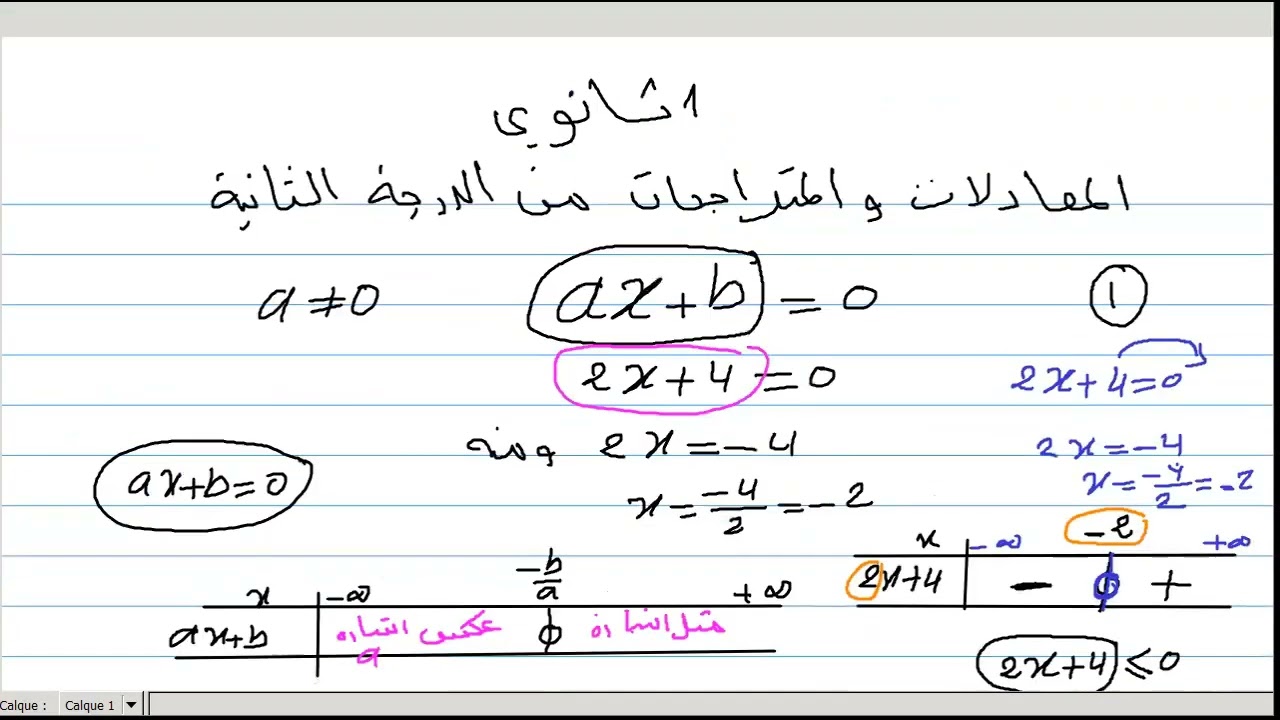 1 ثانوي
المعادلات و المتراجحات من الدرجة الثانية
① ax+b = 0 a ≠ 0
2x+4 = 0
2x+4=0
ومنه 2x = -4
2x = -4
x = -4/2 = -2
x = -4/2 = -2
ax+b=0
x -∞ -2 +∞
2x+4 - 0 +
x -∞ -b/a +∞
ax+b عكس اشارة a 0 مثل اشارة
2x+4 ≤ 0
Calque : Calque 1